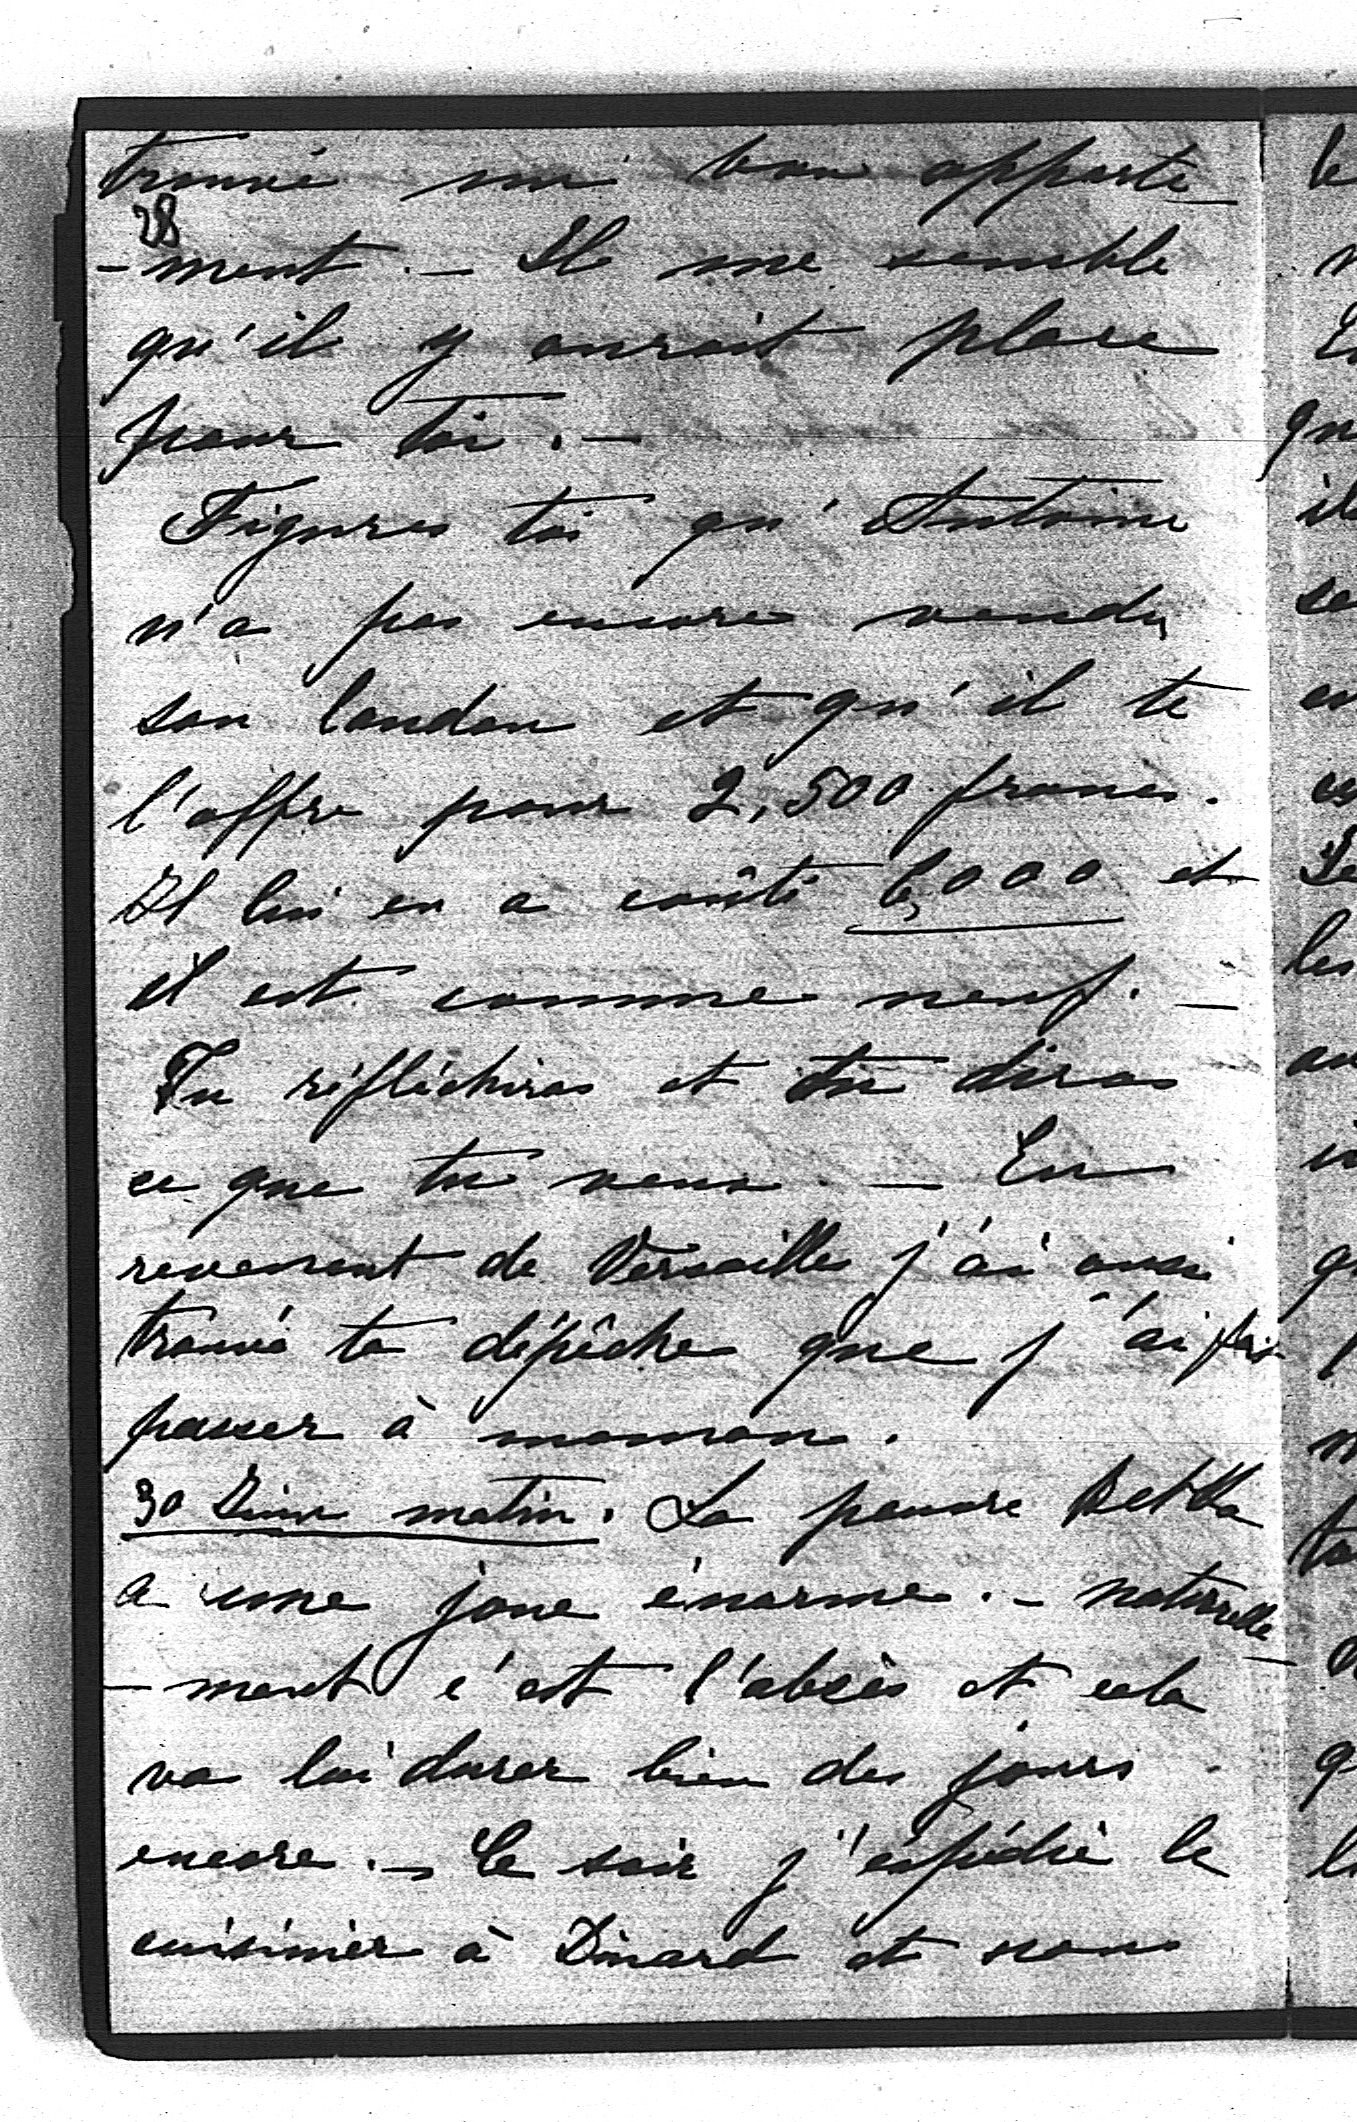 trouvé un bon apparte
28
-ment. - Il me semble
qu'il y aurait place
pour toi. -
Figures toi qu'Antoine
n'a pas encore vendu
son landau et qu'il te
l'offre pour 2,500 francs.
Il lui en a coûté 6,000 et
il est comme neuf. -
Tu réfléchiras et tu diras
ce que tu veux. - En
revenant de Versailles j'ai aussi
trouvé ta dépêche que j'ai fait
passer à maman.
30 matin. La pauvre Betka
a une joue énorme. - naturelle
-ment c'est l'abcès et cela
va lui durer bien des jours
encore. - Ce soir j'expédie le
cuisinier à Dinard et nous